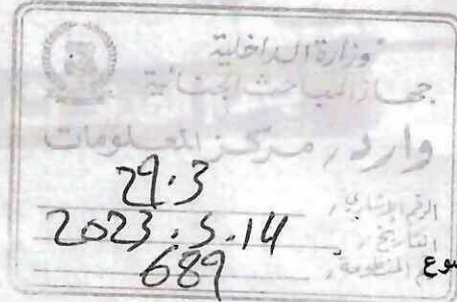 وزارة الداخلية
جهاز المباحث الجنائية
وارد / مركز المعلومات
الرقم الإشاري / 29.3
التاريخ / 2023.5.14
المنظومة / 689